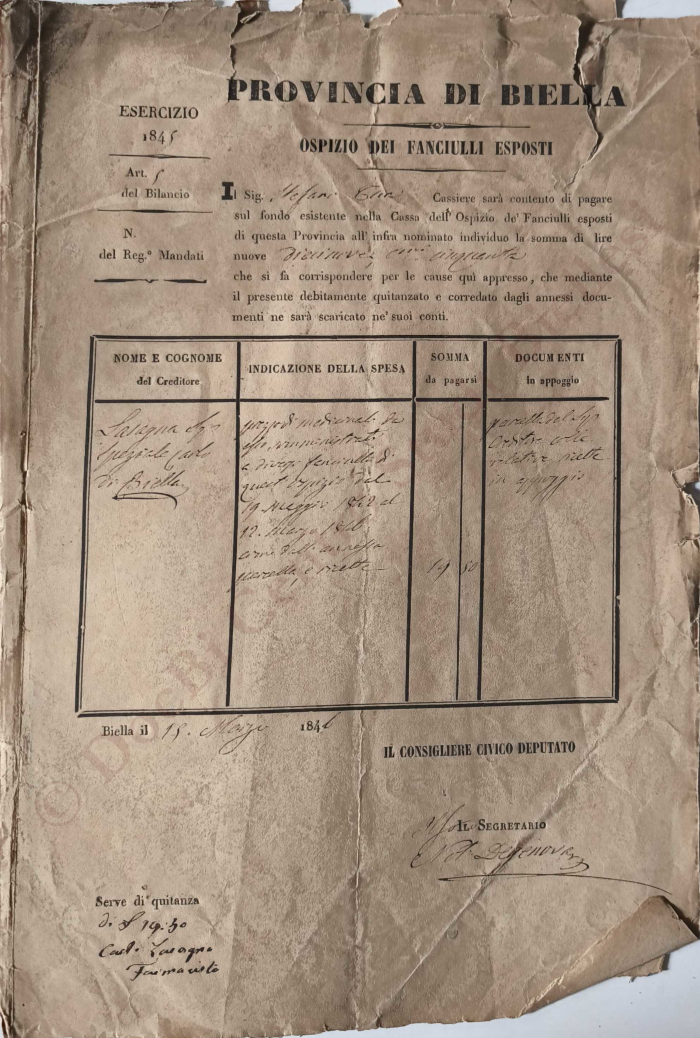 PROVINCIA DI BIELLA
OSPIZIO DEI FANCIULLI ESPOSTI
ESERCIZIO
1845
Art. 5
del Bilancio
N.
del Reg.º Mandati
Il Sig. Cassiere sarà contento di pagare
sul fondo esistente nella Cassa dell' Ospizio de' Fanciulli esposti
di questa Provincia all' infra nominato individuo la somma di lire
nuove diecinove, cinquanta
che si fa corrispondere per le cause quì appresso, che mediante
il presente debitamente quitanzato e corredato dagli annessi docu-
menti ne sarà scaricato ne' suoi conti.
NOME E COGNOME
del Creditore
INDICAZIONE DELLA SPESA
SOMMA
da pagarsi
DOCUMENTI
in appoggio
Lasagna Sig.
Speziale Carlo
di Biella
prezzo di medicinali da
esso somministrati
a diversi fanciulli di
quest' Ospizio dal
19 Maggio 1842 al
12 Marzo
come dall' annessa
parcella, e ricette
19 50
parcella del Sig.
Creditore colle
relative ricette
in appoggio
Biella il 15. Marzo 1846
IL CONSIGLIERE CIVICO DEPUTATO
IL SEGRETARIO
Degenova
Serve di quitanza
di 19.50
Carlo Lasagna
Farmacista